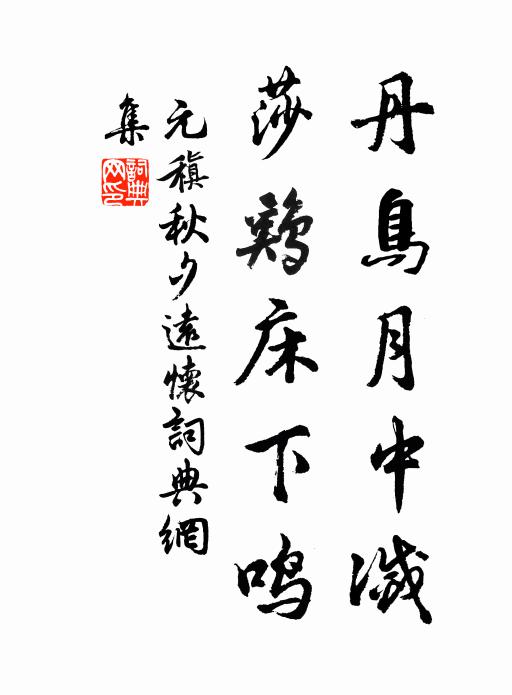 丹鳥月中滅
莎鷄床下鳴
元稹秋夕遠懷詞典網
集
詞典網印